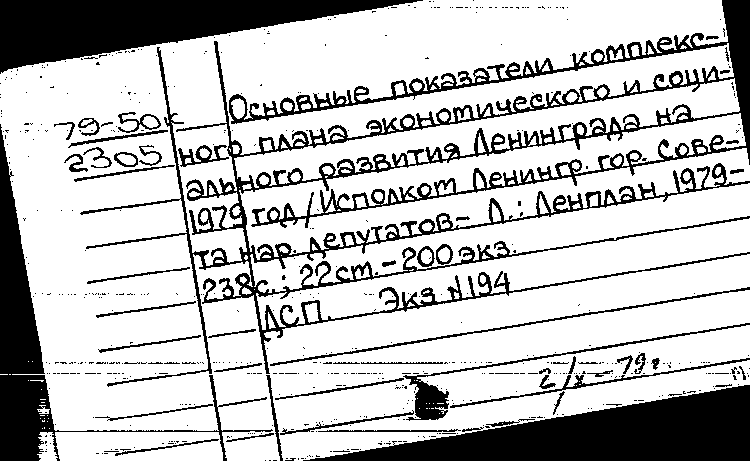 79-50к
2305
Основные показатели комплекс-
ного плана экономического и соци-
ального развития Ленинграда на
1979 год / Исполком Ленингр. гор. Сове-
та нар. депутатов.- Л.: Ленплан, 1979-
238 с.; 22 см. - 200 экз.
ДСП. Экз №194
2/х - 79 г.